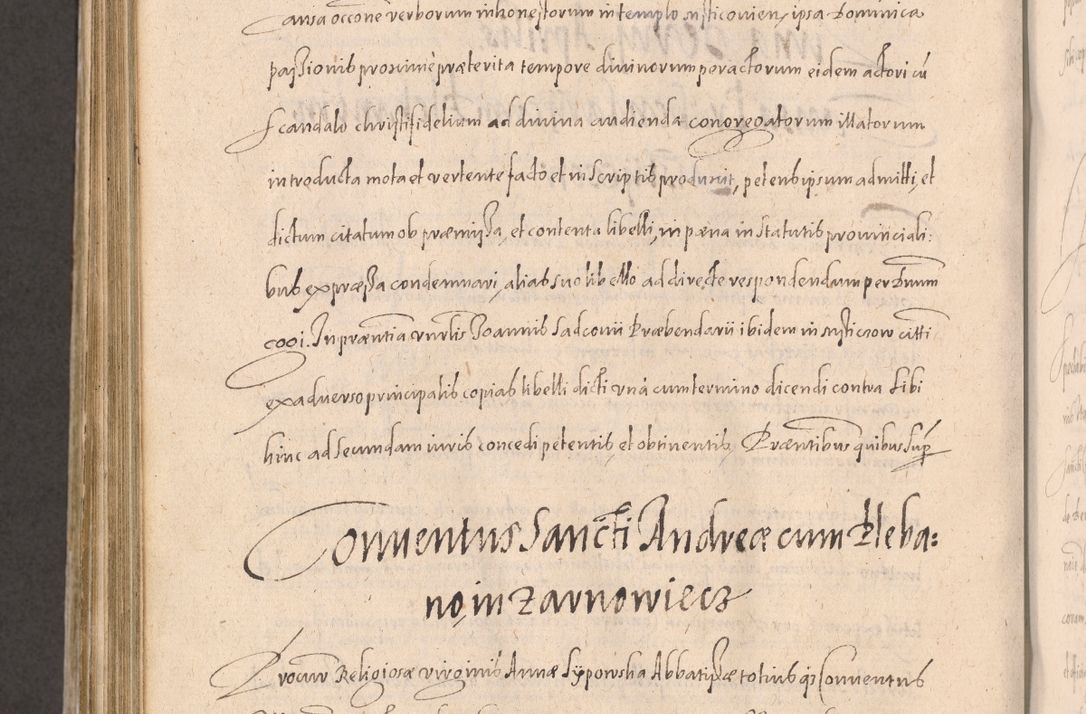 ausa occone verborum inhonestorum in templo ipsa Dominica
passionis proxime præterita tempore divinorum peractorum eidem actori cū
scandalo christifidelium ad divina audienda congregatorum illatorum
introducta mota et vertente facto et in scriptis produxit, petens ipsum admitti, et
dictum citatum ob præmissa, et contenta libelli, in pæna in statutis provinciali:
bus expræssa condemnari, alias suo libello ad directe respondendum per Dnum
cogi. In præntia Joannis Sadconii Præbendarii ibidem in citti
ex adverso principalis copias libelli dicti una cum termino dicendi contra sibi
hinc ad secundam iuris concedi petentis, et obtinentis, Præntibus quibus supr
Conventus Sancti Andreæ cum Pleba:
no in Zarnowiecz
Procur Religiosæ virginis Annæ Lypowska Abbatissæ totius q Conventus